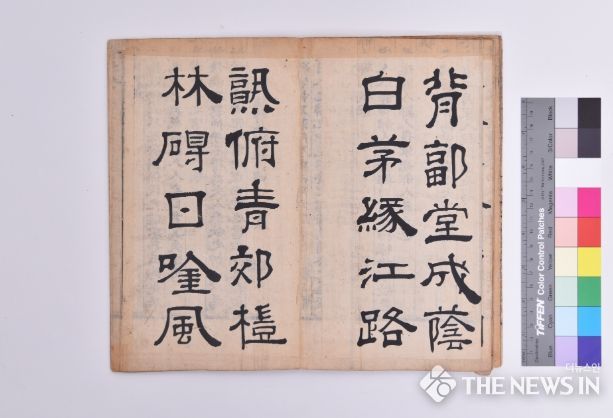 背郭堂成蔭
白茅緣江路
熟俯青郊榿
林碍日唫風
TIFFEN Color Control Patches
Black
3/Color
White
Magenta
Red
Yellow
Green
Cyan
Blue
더뉴스인
THE NEWS IN